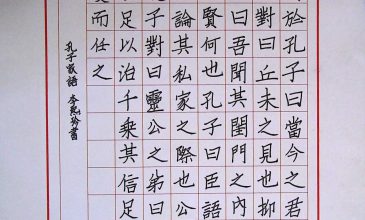 於孔子曰當今之君
對曰丘未之見也抑
曰吾聞其閨門之內
賢何也孔子曰臣語
論其私家之際也公
子對曰靈公之弟曰
足以治千乘其信足
愛而任之
孔子家語 李 書